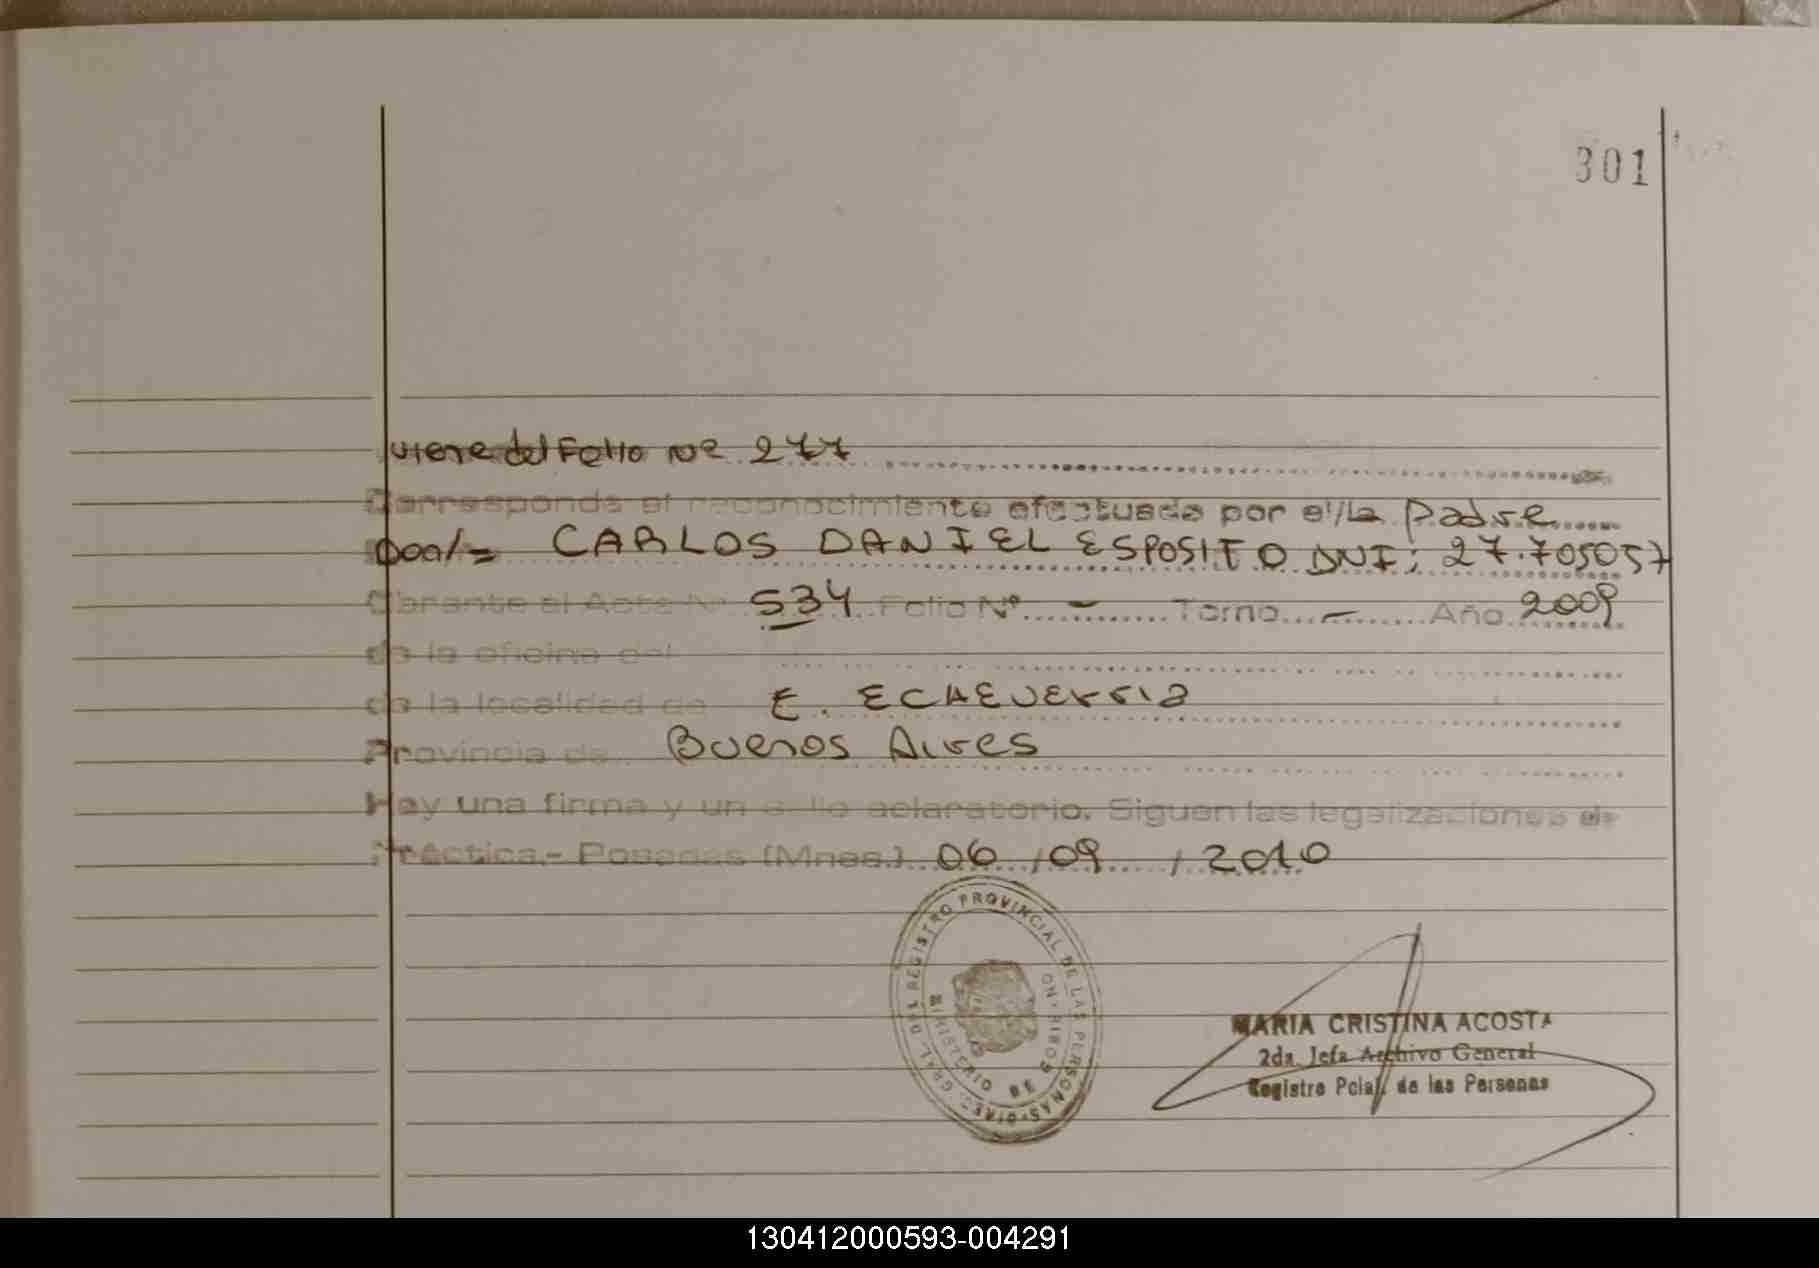 301
viene del Folio Nº 277
Corresponde al reconocimiento efectuado por el/la Padre
Don/= CARLOS DANIEL ESPOSITO DNI: 27.705057
Obrante al Acta Nº 534 Folio Nº - Tomo - Año 2009
de la oficina del
de la localidad de E. ECHEVERRIA
Provincia de Buenos Aires
Hay una firma y un sello aclaratorio. Siguen las legalizaciones de
Práctica.- Posadas (Mnes.) 06 / 09 / 2010
DIREC. GRAL. DEL REGISTRO PROVINCIAL DE LAS PERSONAS
MINISTERIO DE GOBIERNO
MARIA CRISTINA ACOSTA
2da. Jefa Archivo General
Registro Pcial. de las Personas
130412000593-004291